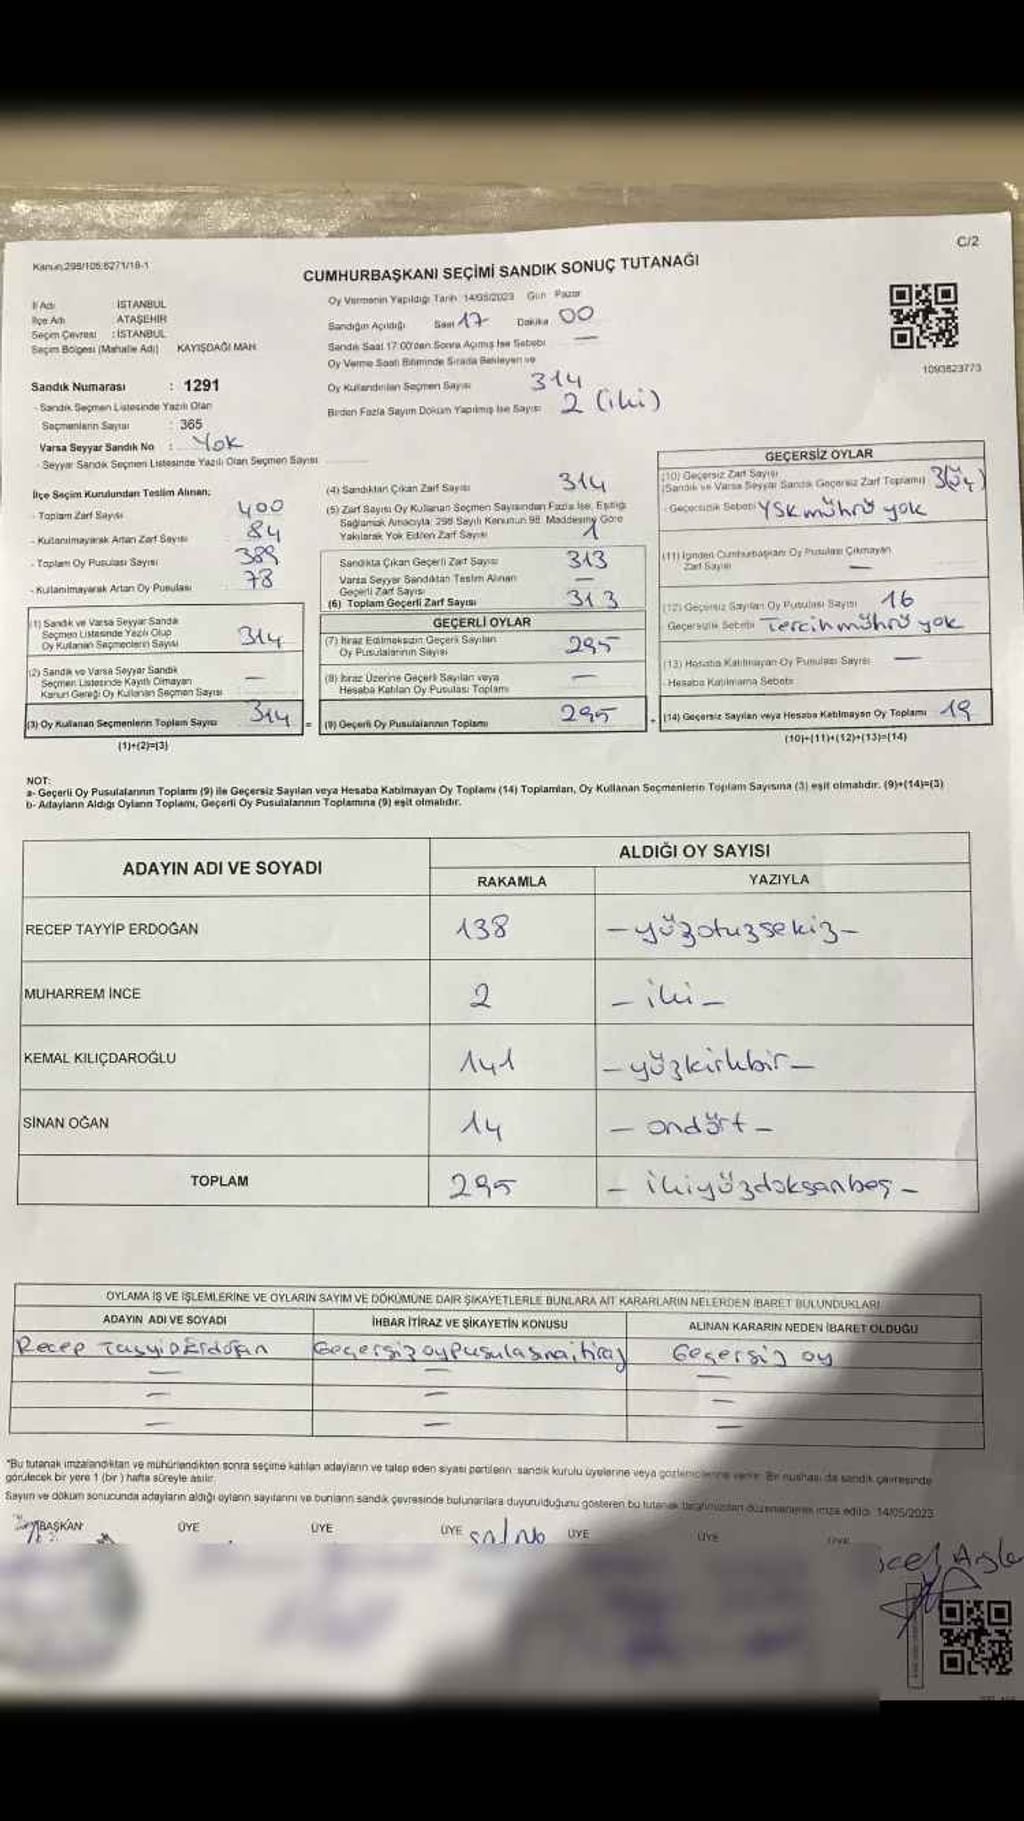 C/2
Kanun:298/105;6271/18-1
CUMHURBAŞKANI SEÇİMİ SANDIK SONUÇ TUTANAĞI
İl Adı : İSTANBUL
İlçe Adı : ATAŞEHİR
Seçim Çevresi : İSTANBUL
Seçim Bölgesi (Mahalle Adı) KAYIŞDAĞI MAH.
Sandık Numarası : 1291
- Sandık Seçmen Listesinde Yazılı Olan
Seçmenlerin Sayısı : 365
Varsa Seyyar Sandık No : Yok
- Seyyar Sandık Seçmen Listesinde Yazılı Olan Seçmen Sayısı
Oy Vermenin Yapıldığı Tarih 14/05/2023 Gün Pazar
Sandığın Açıldığı Saat 17 Dakika 00
Sandık Saat 17:00'den Sonra Açılmış İse Sebebi —
Oy Verme Saati Bitiminde Sırada Bekleyen ve
Oy Kullandırılan Seçmen Sayısı 314
Birden Fazla Sayım Döküm Yapılmış İse Sayısı 2 (iki)
1093623773
İlçe Seçim Kurulundan Teslim Alınan;
- Toplam Zarf Sayısı 400
- Kullanılmayarak Artan Zarf Sayısı 84
- Toplam Oy Pusulası Sayısı 389
- Kullanılmayarak Artan Oy Pusulası 78
(1) Sandık ve Varsa Seyyar Sandık
Seçmen Listesinde Yazılı Olup
Oy Kullanan Seçmenlerin Sayısı 314
(2) Sandık ve Varsa Seyyar Sandık
Seçmen Listesinde Kayıtlı Olmayan
Kanun Gereği Oy Kullanan Seçmen Sayısı —
(3) Oy Kullanan Seçmenlerin Toplam Sayısı 314 =
(1)+(2)=(3)
(4) Sandıktan Çıkan Zarf Sayısı 314
(5) Zarf Sayısı Oy Kullanan Seçmen Sayısından Fazla İse, Eşitliği
Sağlamak Amacıyla; 298 Sayılı Kanunun 98. Maddesine Göre
Yakılarak Yok Edilen Zarf Sayısı 1
Sandıkta Çıkan Geçerli Zarf Sayısı 313
Varsa Seyyar Sandıktan Teslim Alınan
Geçerli Zarf Sayısı —
(6) Toplam Geçerli Zarf Sayısı 313
GEÇERLİ OYLAR
(7) İtiraz Edilmeksizin Geçerli Sayılan
Oy Pusulalarının Sayısı 295
(8) İtiraz Üzerine Geçerli Sayılan veya
Hesaba Katılan Oy Pusulası Toplamı —
(9) Geçerli Oy Pusulalarının Toplamı 295 +
GEÇERSİZ OYLAR
(10) Geçersiz Zarf Sayısı
(Sandık ve Varsa Seyyar Sandık Geçersiz Zarf Toplamı) 3(üç)
- Geçersizlik Sebebi YSK mührü yok
(11) İçinden Cumhurbaşkanı Oy Pusulası Çıkmayan
Zarf Sayısı —
(12) Geçersiz Sayılan Oy Pusulası Sayısı 16
Geçersizlik Sebebi Tercih mührü yok
(13) Hesaba Katılmayan Oy Pusulası Sayısı —
- Hesaba Katılmama Sebebi
(14) Geçersiz Sayılan veya Hesaba Katılmayan Oy Toplamı 19
(10)+(11)+(12)+(13)=(14)
NOT:
a- Geçerli Oy Pusulalarının Toplamı (9) ile Geçersiz Sayılan veya Hesaba Katılmayan Oy Toplamı (14) Toplamları, Oy Kullanan Seçmenlerin Toplam Sayısına (3) eşit olmalıdır. (9)+(14)=(3)
b- Adayların Aldığı Oyların Toplamı, Geçerli Oy Pusulalarının Toplamına (9) eşit olmalıdır.
ADAYIN ADI VE SOYADI
ALDIĞI OY SAYISI
RAKAMLA YAZIYLA
RECEP TAYYİP ERDOĞAN 138 -yüzotuzsekiz-
MUHARREM İNCE 2 -iki-
KEMAL KILIÇDAROĞLU 141 -yüzkırkbir-
SİNAN OĞAN 14 -ondört-
TOPLAM 295 -ikiyüzdoksanbeş-
OYLAMA İŞ VE İŞLEMLERİNE VE OYLARIN SAYIM VE DÖKÜMÜNE DAİR ŞİKAYETLERLE BUNLARA AİT KARARLARIN NELERDEN İBARET BULUNDUKLARI
ADAYIN ADI VE SOYADI İHBAR İTİRAZ VE ŞİKAYETİN KONUSU ALINAN KARARIN NEDEN İBARET OLDUĞU
Recep Tayyip Erdoğan Geçersiz oy pusulasına itiraz Geçersiz oy
— — —
— — —
— — —
*Bu tutanak imzalandıktan ve mühürlendikten sonra seçime katılan adayların ve talep eden siyasi partilerin sandık kurulu üyelerine veya gözlemcilerine verilir. Bir nüshası da sandık çevresinde
görülecek bir yere 1 (bir) hafta süreyle asılır.
Sayım ve döküm sonucunda adayların aldığı oyların sayılarını ve bunların sandık çevresinde bulunanlara duyurulduğunu gösteren bu tutanak tarafımızdan düzenlenerek imza edildi. 14/05/2023
BAŞKAN ÜYE ÜYE ÜYE ÜYE ÜYE ÜYE